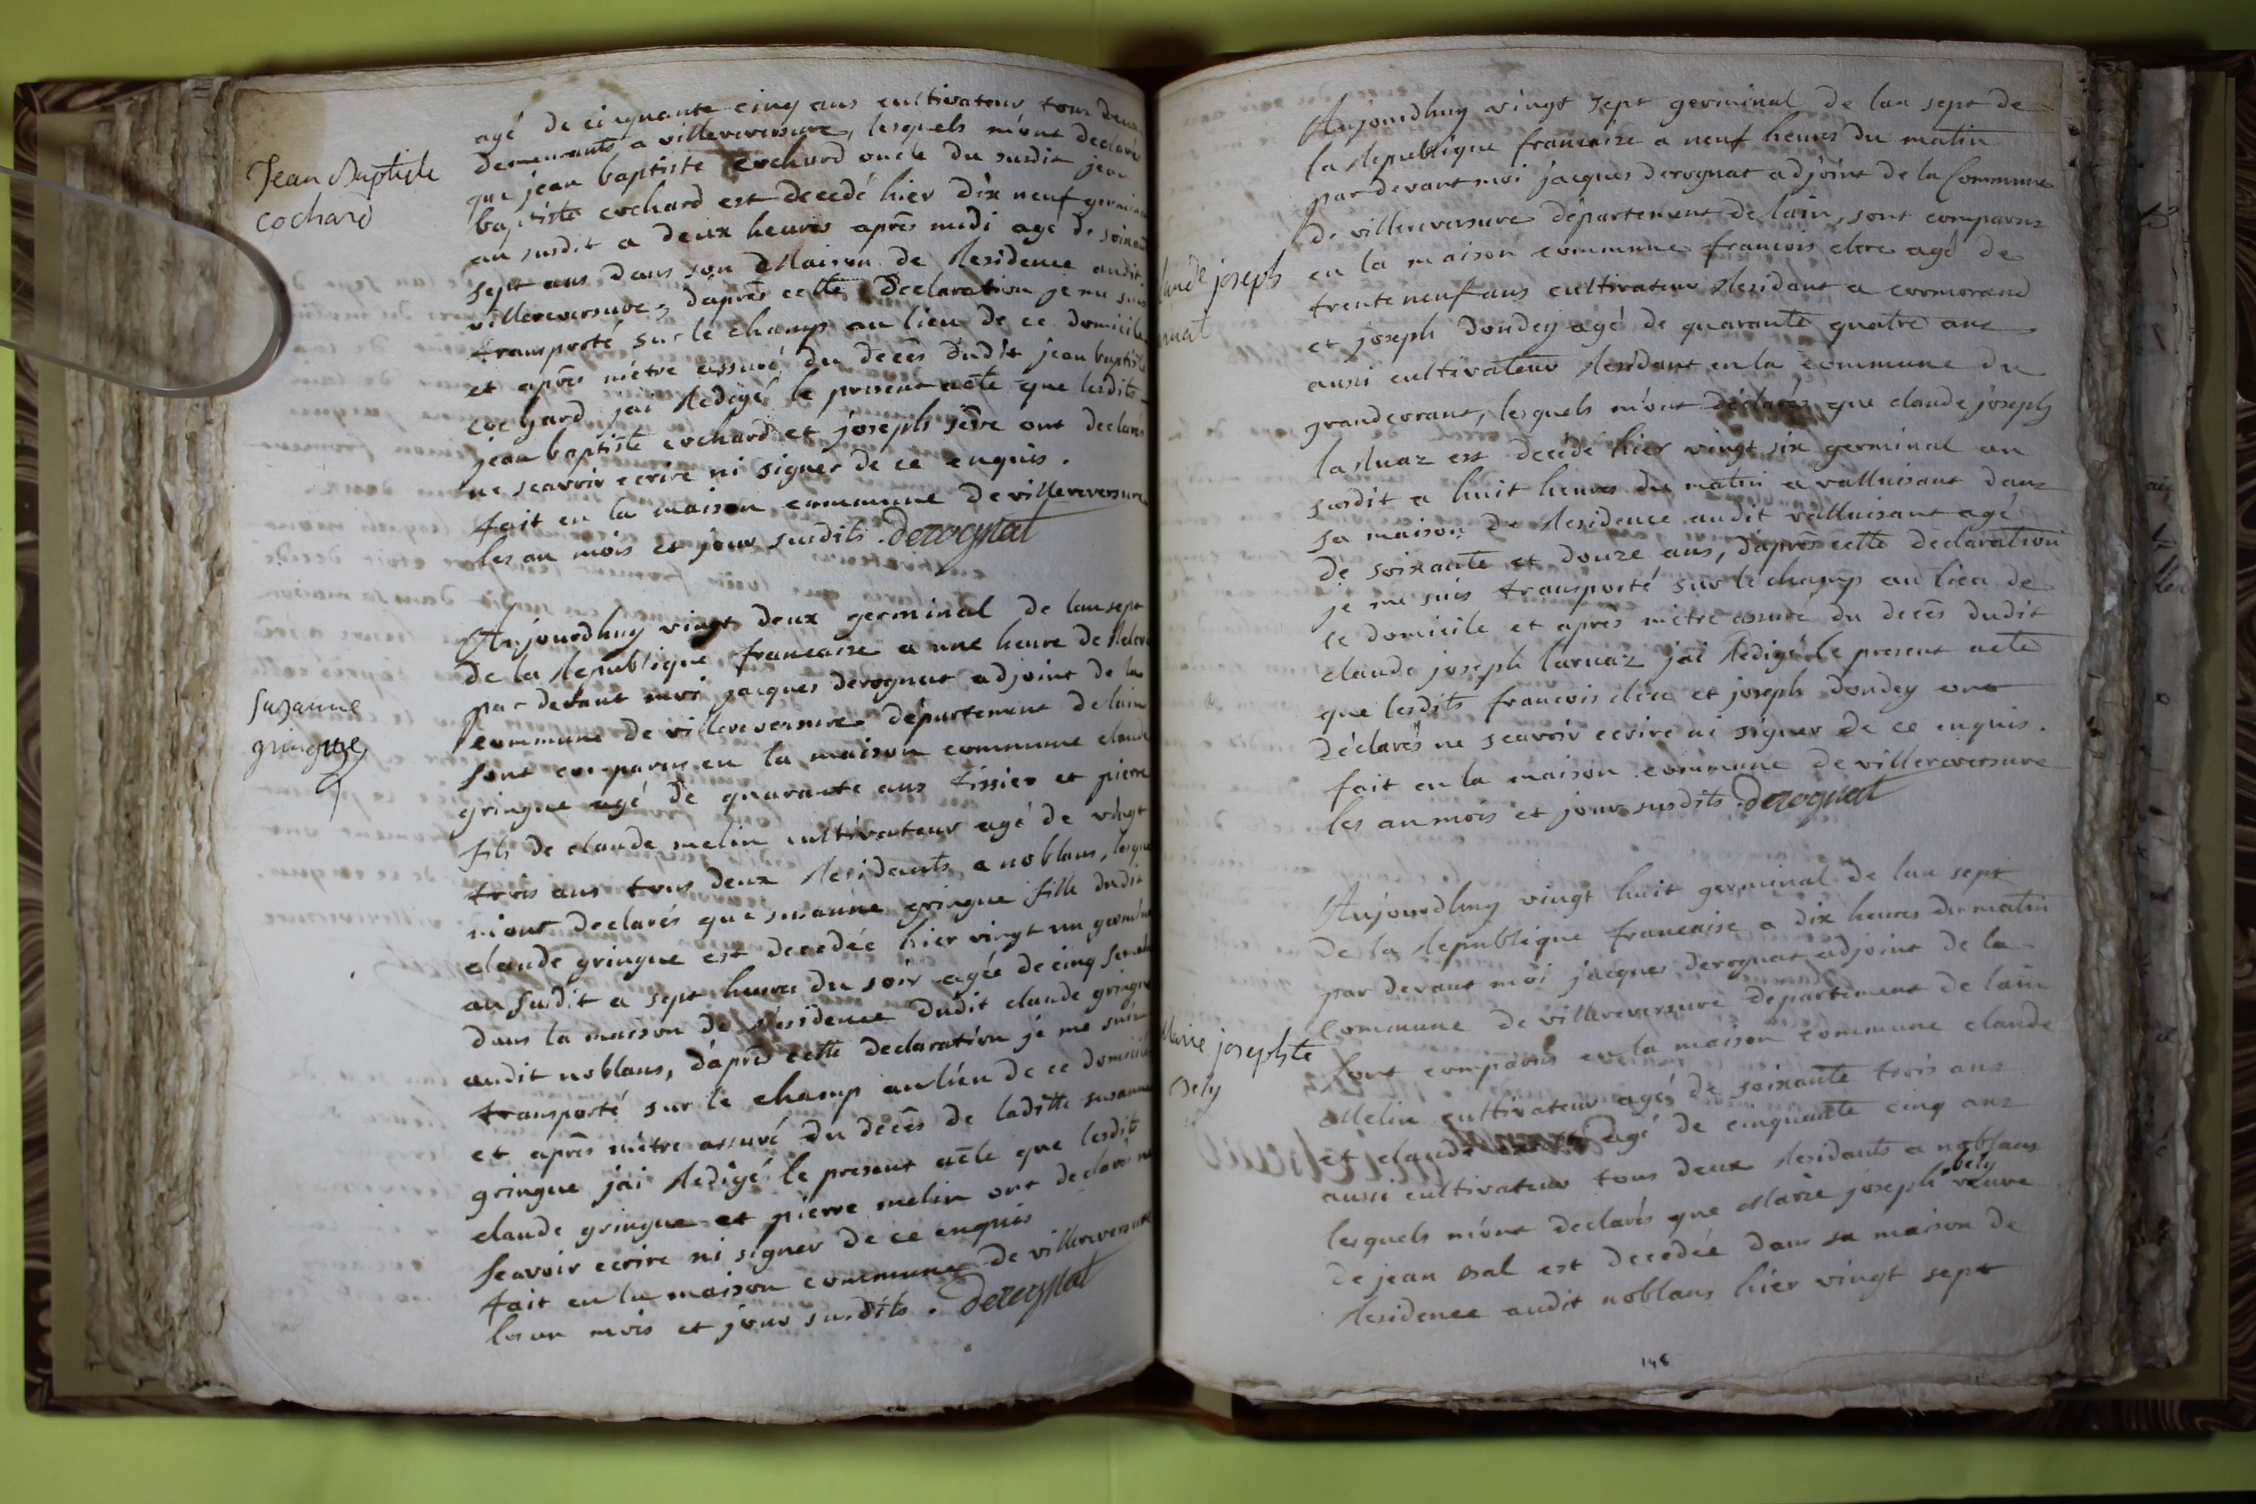 Jean Baptiste
cochard
agé de cinquante cinq ans cultivateur tous deux
demeurants a villereversure, lesquels m'ont declarés
que jean baptiste cochard oncle du susdit jean
baptiste cochard est decedé hier dix neuf germinal
an susdit a deux heures aprês midi agé de soixante
sept ans dans son Maison de Residence audit
villereversure, d'aprês cette Declaration je me suis
transporté sur le champ au lieu de ce domicile
et aprês m'etre assuré du decês dudit jean baptiste
cochard jai Redigé le present acte que lesdits
jean baptiste cochard et joseph sève ont declarés
ne scavoir ecrire ni signer de ce enquis.
fait en la maison commune de villereversure
les an mois et jour susdits. Derognat
Suzanne
gringue
Aujourdhuy vingt deux germinal de lan sept
de la Republique francaise a une heure de Relevé
par devant moi jacques derognat adjoint de la
commune de villereversure département de lain
sont comparus en la maison commune claude
gringue agé de quarante ans tissier et pierre
fils de claude melin cultivateur agé de vingt
trois ans tous deux Residents a noblans, lesquels
m'ont declarés que susanne gringue fille dudit
claude gringue est decedée hier vingt un germinal
an susdit a sept heures du soir agée de cinq
dans la maison de Residence dudit claude gringue
audit noblans, d'aprês cette declaration je me suis
transporté sur le champ au lieu de ce domicile
et aprês m'etre assuré du decês de laditte susanne
gringue jai Redigé le present acte que lesdits
claude gringue et pierre melin ont declarés ne
scavoir ecrire ni signer de ce enquis
fait en la maison commune de villereversure
les an mois et jour susdits. Derognat
Aujourdhuy vingt sept germinal de lan sept de
la Republique francaise a neuf heures du matin
par devant moi jacques derognat adjoint de la Commune
de villereversure département de lain, sont comparus
en la maison commune francois clerc agé de
trente neuf ans cultivateur Residant a cormorand
et joseph dondey agé de quarante quatre ans
aussi cultivateur Residant en la commune du
grandcorant, lesquels m'ont déclarés que claude joseph
laruaz est decédé hier vingt six germinal an
susdit a huit heures du matin a valluisant dans
sa maison de Residence audit valluisant agé
de soixante et douze ans, d'aprês cette declaration
je me suis transporté sur le champ au lieu de
ce domicile et aprês m'etre assuré du decês dudit
claude joseph laruaz jai Redigé le present acte
que lesdits francois clerc et joseph dondey ont
déclarés ne scavoir ecrire ni signer de ce enquis.
fait en la maison commune de villereversure
les an mois et jour susdits. Derognat
joseph
Marie josephte
Bely
Aujourdhuy vingt huit germinal de lan sept
de la Republique francaise a dix heures du matin
par devant moi jacques derognat adjoint de la
commune de villereversure departement de lain
sont comparus en la maison commune claude
Melin cultivateur agé de soixante trois ans
et claude agé de cinquante cinq ans
aussi cultivateur tous deux Residants a noblans
lesquels m'ont declarés que Marie joseph bely veuve
de jean bal est decedée dans sa maison de
Residence audit noblans hier vingt sept
148